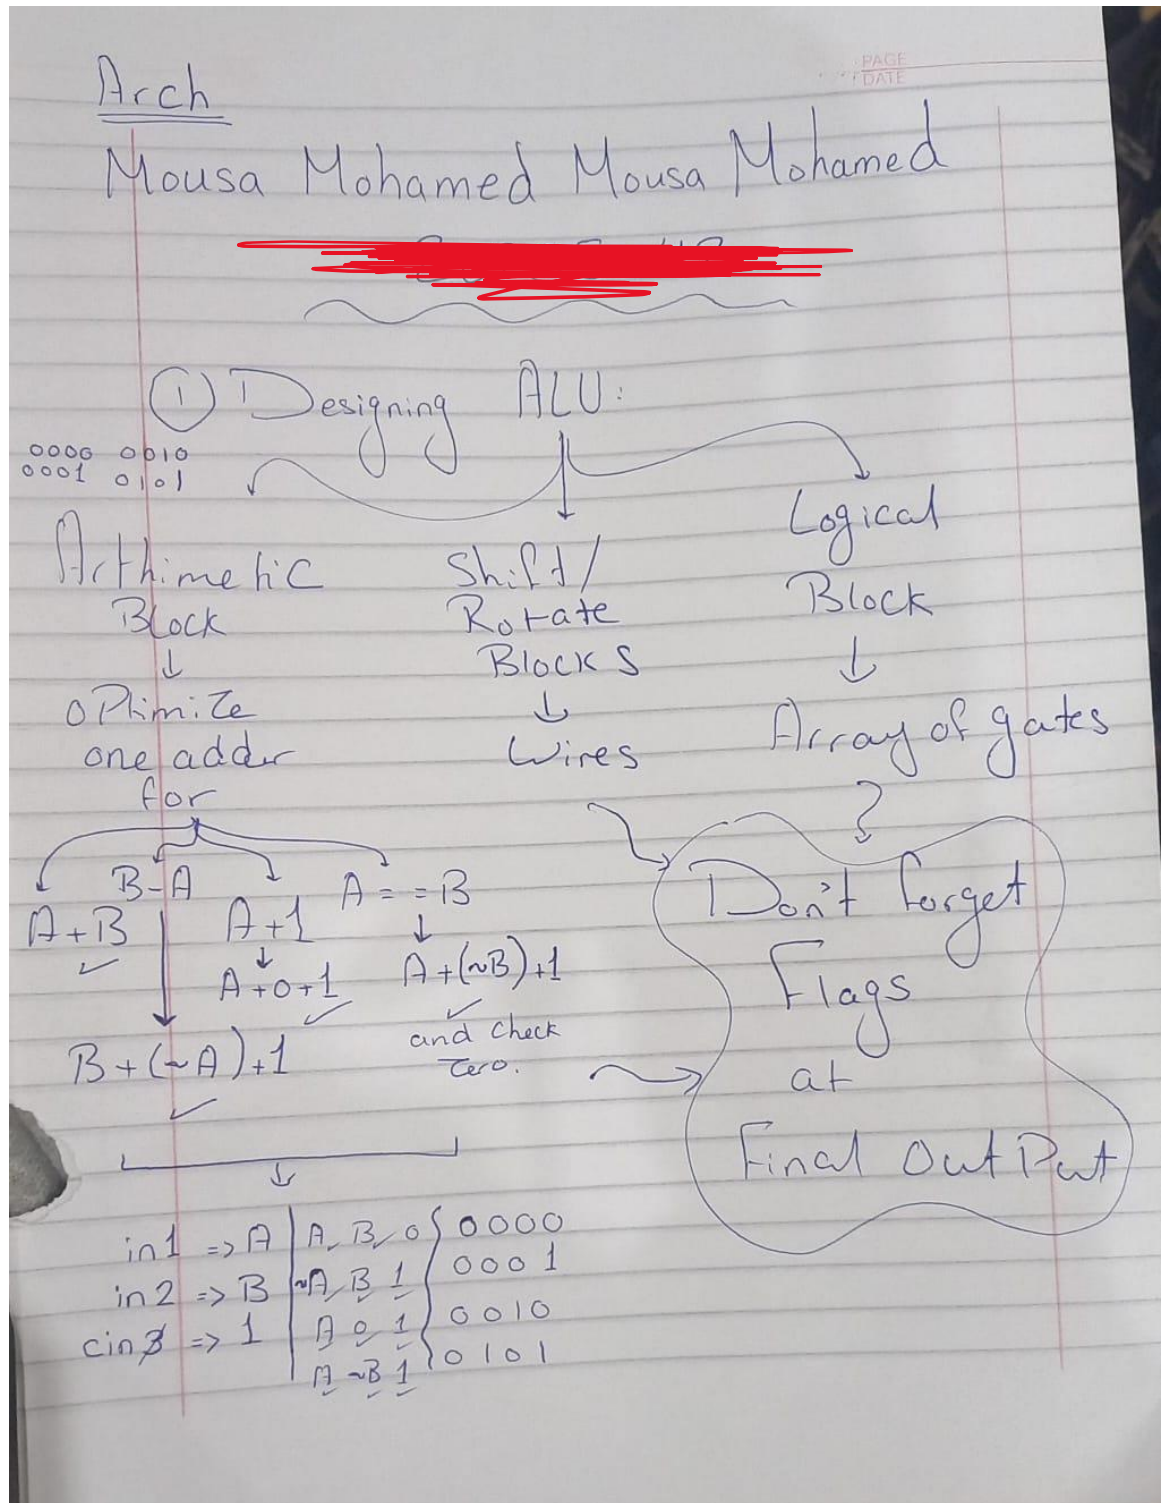 PAGE
DATE
Arch
Mousa Mohamed Mousa Mohamed
① Designing ALU:
0000 0010
0001 0101
Arthimetic
Block
↓
oPtimize
one adder
for
A+B
B-A
B+(~A)+1
A+1
↓
A+0+1
A==B
↓
A+(~B)+1
and check
zero.
Shift/
Rotate
Blocks
↓
Wires
Logical
Block
↓
Array of gates
Don't forget
Flags
at
Final OutPut
in1 => A | A, B, 0 { 0000
in2 => B | ~A, B 1 { 0001
cin => 1 | A 0 1 { 0010
A ~B 1 } 0101